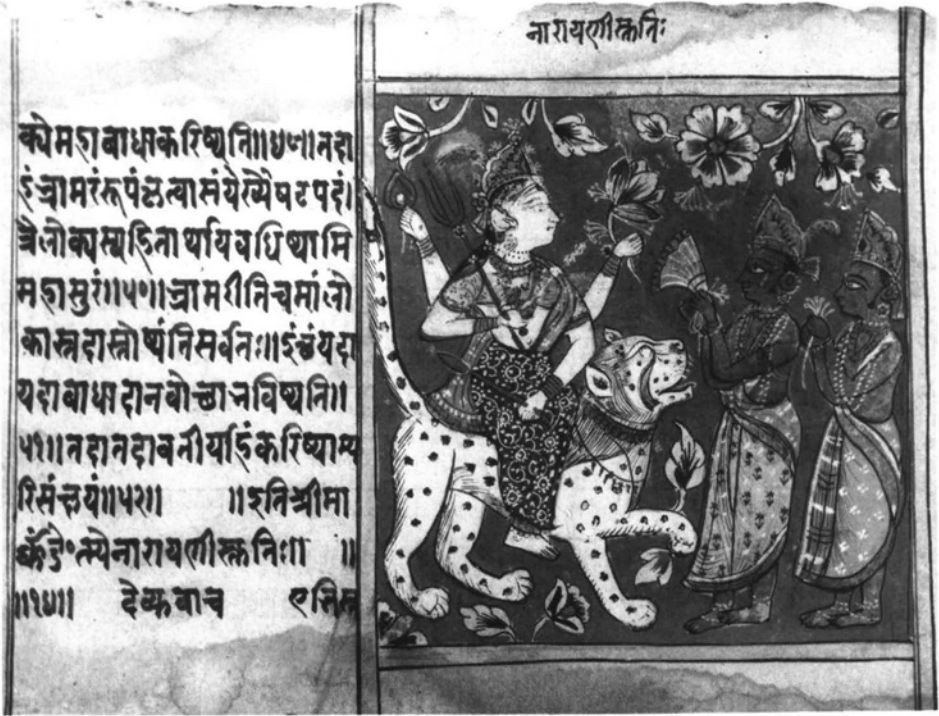 नारायणीस्तुतिः
क्येमहाबाधाकरिष्यति॥५०॥तदा
हंभ्रामरंरूपंकृत्वासंख्येयषटपदं।
त्रैलोक्यस्यहितार्थायवधिष्यामि
महासुरं॥५१॥भ्रामरीतिचमांलो
कास्तदास्तोष्यंतिसर्वतः॥इत्थंयदा
यदाबाधादानवोत्थाभविष्यति॥
५१॥तदातदावतीर्याहंकरिष्याम्य
रिसंक्षयं॥५२॥ ॥इतिश्रीमा
नारायणीस्तुतिः॥ ॥
॥१४॥ देव्युवाच एभिस्त